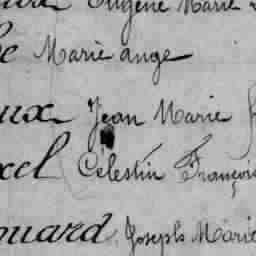 Eugène Marie
Marie ange
ux Jean Marie
xel Celestin François
ouard Joseph Marie